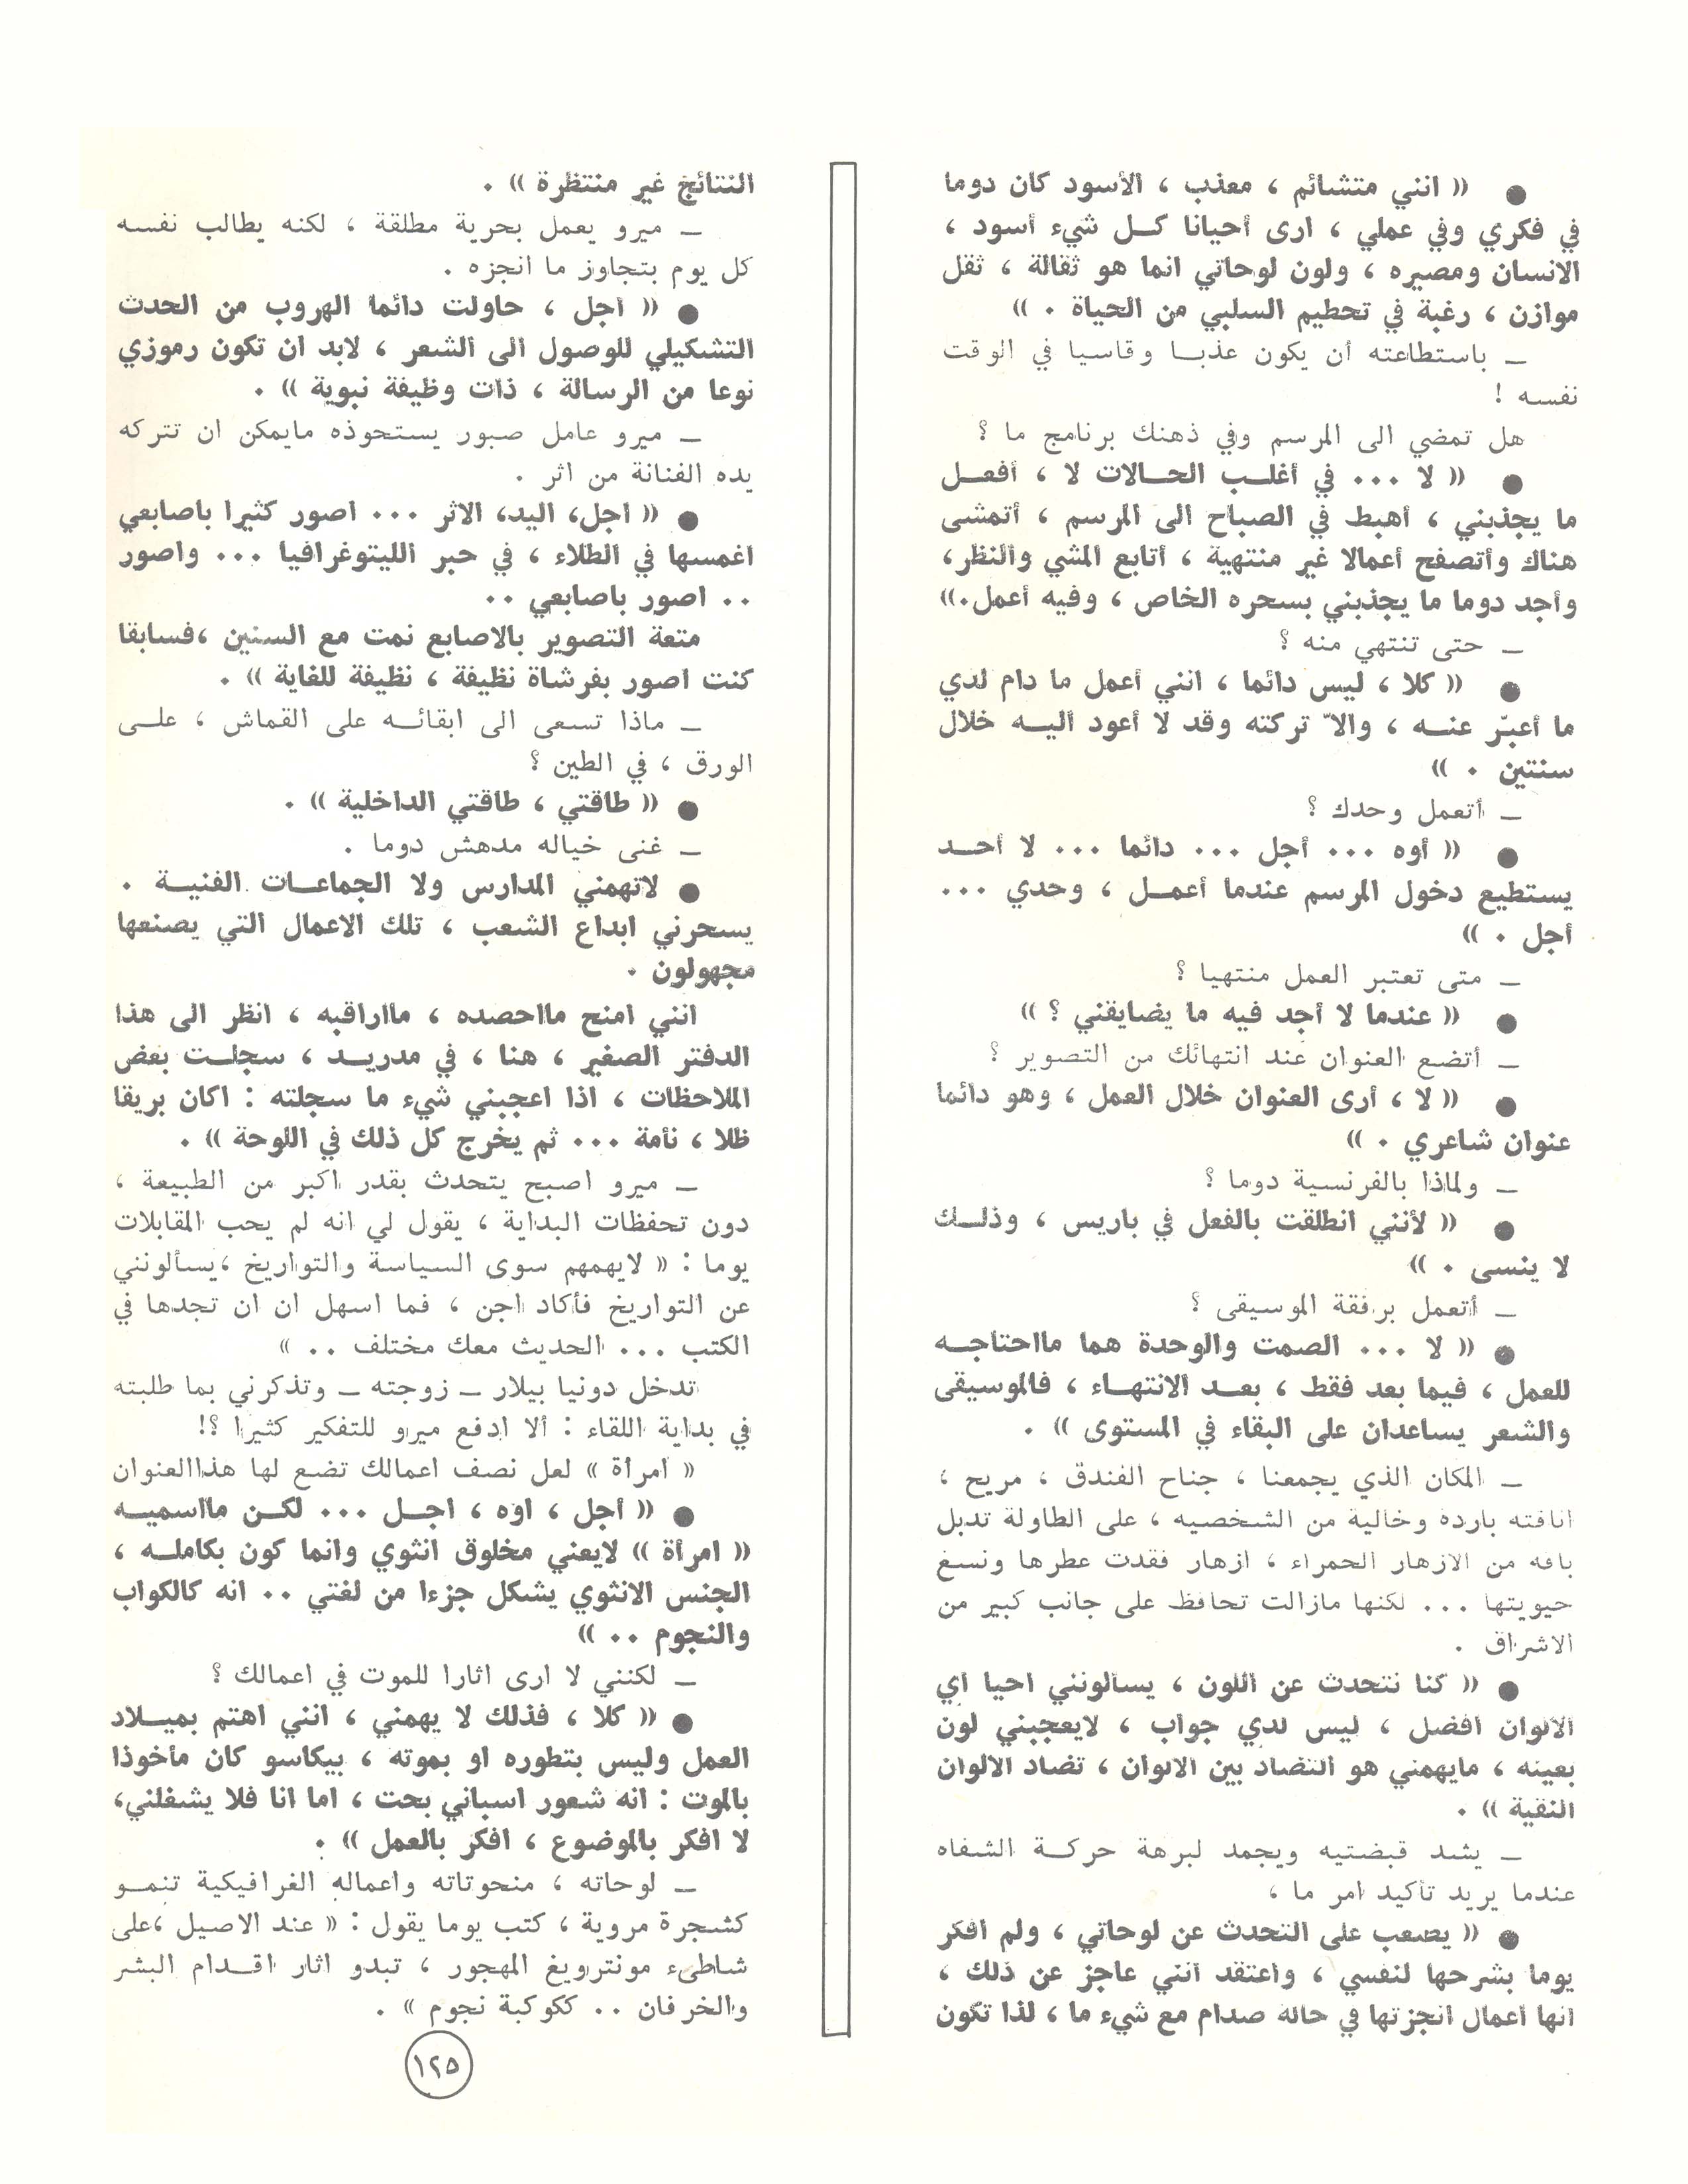 ● « انني متشائم ، معذب ، الأسود كان دوما
في فكري وفي عملي ، ارى أحيانا كل شيء أسود ،
الانسان ومصيره ، ولون لوحاتي انما هو ثقالة ، ثقل
موازن ، رغبة في تحطيم السلبي من الحياة . »
ــ باستطاعته أن يكون عذبا وقاسيا في الوقت
نفسه !
هل تمضي الى المرسم وفي ذهنك برنامج ما ؟
● « لا ... في أغلب الحالات لا ، أفعل
ما يجذبني ، أهبط في الصباح الى المرسم ، أتمشى
هناك وأتصفح أعمالا غير منتهية ، أتابع المشي والنظر،
وأجد دوما ما يجذبني بسحره الخاص ، وفيه أعمل.»
ــ حتى تنتهي منه ؟
● « كلا ، ليس دائما ، انني أعمل ما دام لدي
ما أعبّر عنه ، والاّ تركته وقد لا أعود اليه خلال
سنتين . »
ــ أتعمل وحدك ؟
● « أوه ... أجل ... دائما ... لا أحد
يستطيع دخول المرسم عندما أعمل ، وحدي ...
أجل . »
ــ متى تعتبر العمل منتهيا ؟
● « عندما لا أجد فيه ما يضايقني ؟ »
ــ أتضع العنوان عند انتهائك من التصوير ؟
● « لا ، أرى العنوان خلال العمل ، وهو دائما
عنوان شاعري . »
ــ ولماذا بالفرنسية دوما ؟
● « لأنني انطلقت بالفعل في باريس ، وذلك
لا ينسى . »
ــ أتعمل برفقة الموسيقى ؟
● « لا ... الصمت والوحدة هما مااحتاجه
للعمل ، فيما بعد فقط ، بعد الانتهاء ، فالموسيقى
والشعر يساعدان على البقاء في المستوى » .
ــ المكان الذي يجمعنا ، جناح الفندق ، مريح ،
اناقته باردة وخالية من الشخصيه ، على الطاولة تدبل
باقه من الازهار الحمراء ، ازهار فقدت عطرها ونسغ
حيويتها ... لكنها مازالت تحافظ على جانب كبير من
الاشراق .
● « كنا نتحدث عن اللون ، يسألونني احيا اي
الالوان افضل ، ليس لدي جواب ، لايعجبني لون
بعينه ، مايهمني هو التضاد بين الالوان ، تضاد الالوان
النقية » .
ــ يشد قبضتيه ويجمد لبرهة حركة الشفاه
عندما يريد تأكيد امر ما ،
● « يصعب على التحدث عن لوحاتي ، ولم افكر
يوما بشرحها لنفسي ، واعتقد أنني عاجز عن ذلك ،
انها أعمال انجزتها في حاله صدام مع شيء ما ، لذا تكون
النتائج غير منتظرة » .
ــ ميرو يعمل بحرية مطلقة ، لكنه يطالب نفسه
كل يوم بتجاوز ما انجزه .
● « أجل ، حاولت دائما الهروب من الحدث
التشكيلي للوصول الى الشعر ، لابد ان تكون رموزي
نوعا من الرسالة ، ذات وظيفة نبوية » .
ــ ميرو عامل صبور يستحوذه مايمكن ان تتركه
يده الفنانة من اثر .
● « اجل، اليد، الاثر ... اصور كثيرا باصابعي
اغمسها في الطلاء ، في حبر الليتوغرافيا ... واصور
.. اصور باصابعي ..
متعة التصوير بالاصابع نمت مع السنين ،فسابقا
كنت اصور بفرشاة نظيفة ، نظيفة للغاية » .
ــ ماذا تسعى الى ابقائه على القماش ، على
الورق ، في الطين ؟
● « طاقتي ، طاقتي الداخلية » .
ــ غنى خياله مدهش دوما .
● لاتهمني المدارس ولا الجماعات الفنية .
يسحرني ابداع الشعب ، تلك الاعمال التي يصنعها
مجهولون .
انني امنح مااحصده ، مااراقبه ، انظر الى هذا
الدفتر الصغير ، هنا ، في مدريد ، سجلت بعض
الملاحظات ، اذا اعجبني شيء ما سجلته : اكان بريقا
ظلا ، نأمة ... ثم يخرج كل ذلك في اللوحة » .
ــ ميرو اصبح يتحدث بقدر اكبر من الطبيعة ،
دون تحفظات البداية ، يقول لي انه لم يحب المقابلات
يوما : « لايهمهم سوى السياسة والتواريخ ،يسألونني
عن التواريخ فأكاد اجن ، فما اسهل ان ان تجدها في
الكتب ... الحديث معك مختلف .. »
تدخل دونيا بيلار ــ زوجته ــ وتذكرني بما طلبته
في بداية اللقاء : ألا ادفع ميرو للتفكير كثيرا ؟!
« امرأة » لعل نصف اعمالك تضع لها هذاالعنوان
● « أجل ، اوه ، اجل ... لكن مااسميه
« امرأة » لايعني مخلوق انثوي وانما كون بكامله ،
الجنس الانثوي يشكل جزءا من لغتي .. انه كالكواب
والنجوم .. »
ــ لكنني لا ارى اثارا للموت في اعمالك ؟
● « كلا ، فذلك لا يهمني ، انني اهتم بميلاد
العمل وليس بتطوره او بموته ، بيكاسو كان مأخوذا
بالموت : انه شعور اسباني بحت ، اما انا فلا يشغلني،
لا افكر بالموضوع ، افكر بالعمل » .
ــ لوحاته ، منحوتاته واعماله الغرافيكية تنمو
كشجرة مروية ، كتب يوما يقول : « عند الاصيل ،على
شاطىء مونترويغ المهجور ، تبدو اثار اقدام البشر
والخرفان .. ككوكبة نجوم » .
١٢٥